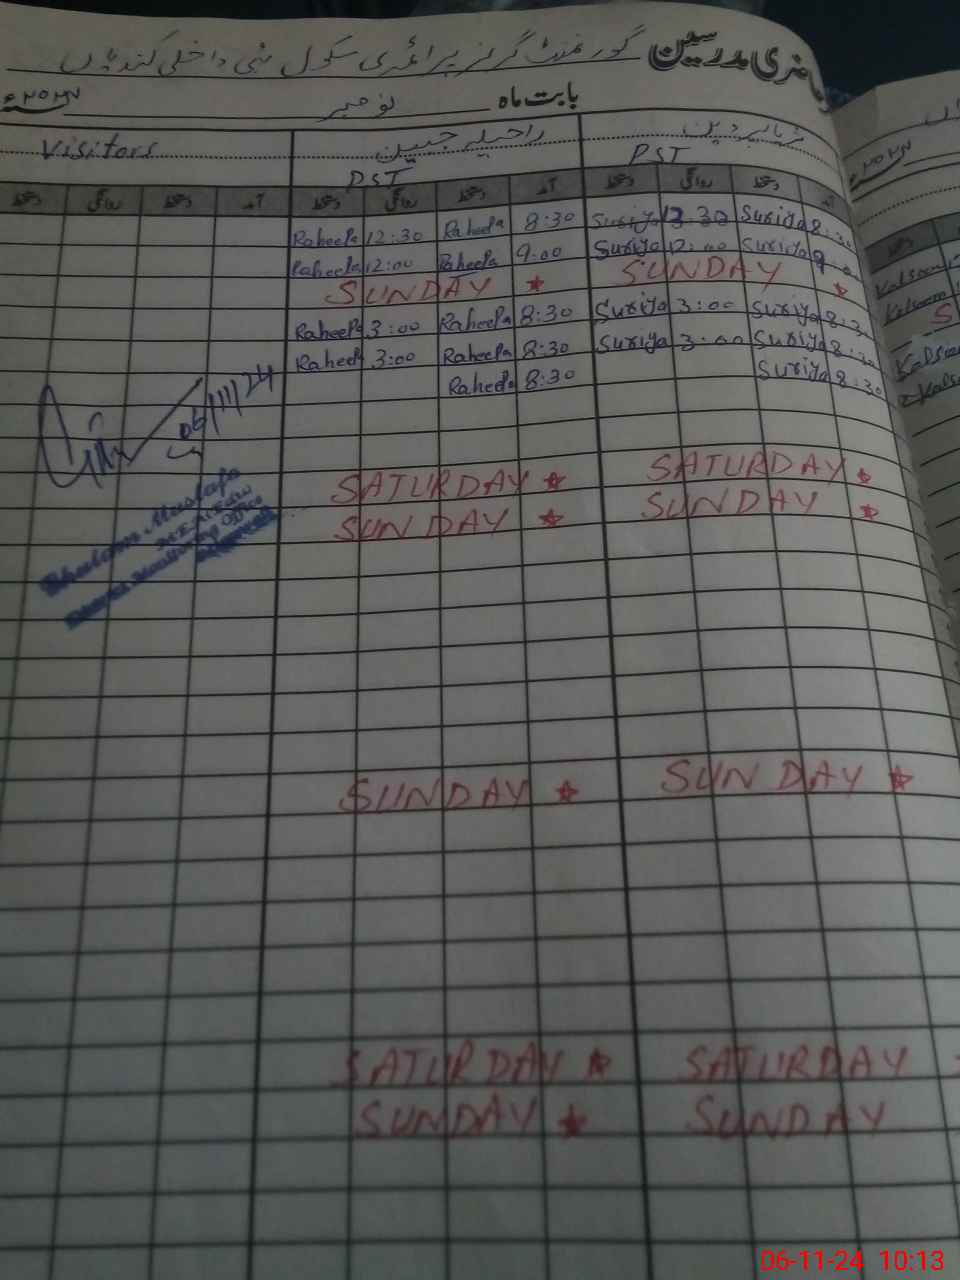 حاضری مدرسین گورنمنٹ گرلز پرائمری سکول
بابت ماہ نومبر ۲۰۲۴ء
Visitors
راحیلہ جبین PST
PST
دستخط روانگی دستخط آمد دستخط روانگی دستخط آمد دستخط روانگی دستخط آمد
Raheela 12:30 Raheela 8:30 Suriya 12:30 Suriya 8:30
Raheela 12:00 Raheela 9:00 Suriya 12:00 Suriya 9:00
SUNDAY SUNDAY
Raheela 3:00 Raheela 8:30 Suriya 3:00 Suriya 8:30
Raheela 3:00 Raheela 8:30 Suriya 3:00 Suriya 8:30
Raheela 8:30 Suriya 8:30
06/11/24
SATURDAY SATURDAY
SUNDAY SUNDAY
Ghulam Mustafa
Monitoring Office
SUNDAY SUNDAY
SATURDAY SATURDAY
SUNDAY SUNDAY
۲۰۲۴ء
Kalsoom
Kalsoom
S
Kalsoom
06-11-24 10:13